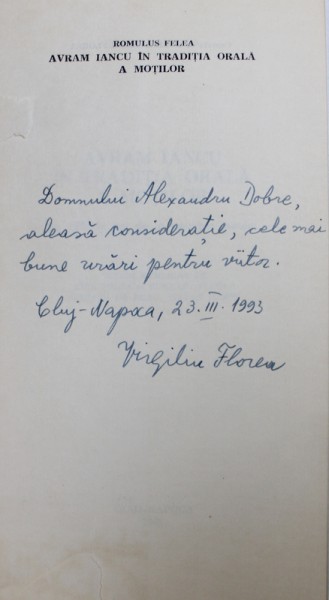 ROMULUS FELEA
AVRAM IANCU ÎN TRADIȚIA ORALĂ
A MOȚILOR
Domnului Alexandru Dobre,
aleasă considerație, cele mai
bune urări pentru viitor.
Cluj-Napoca, 23.III.1993
Virgiliu Florea